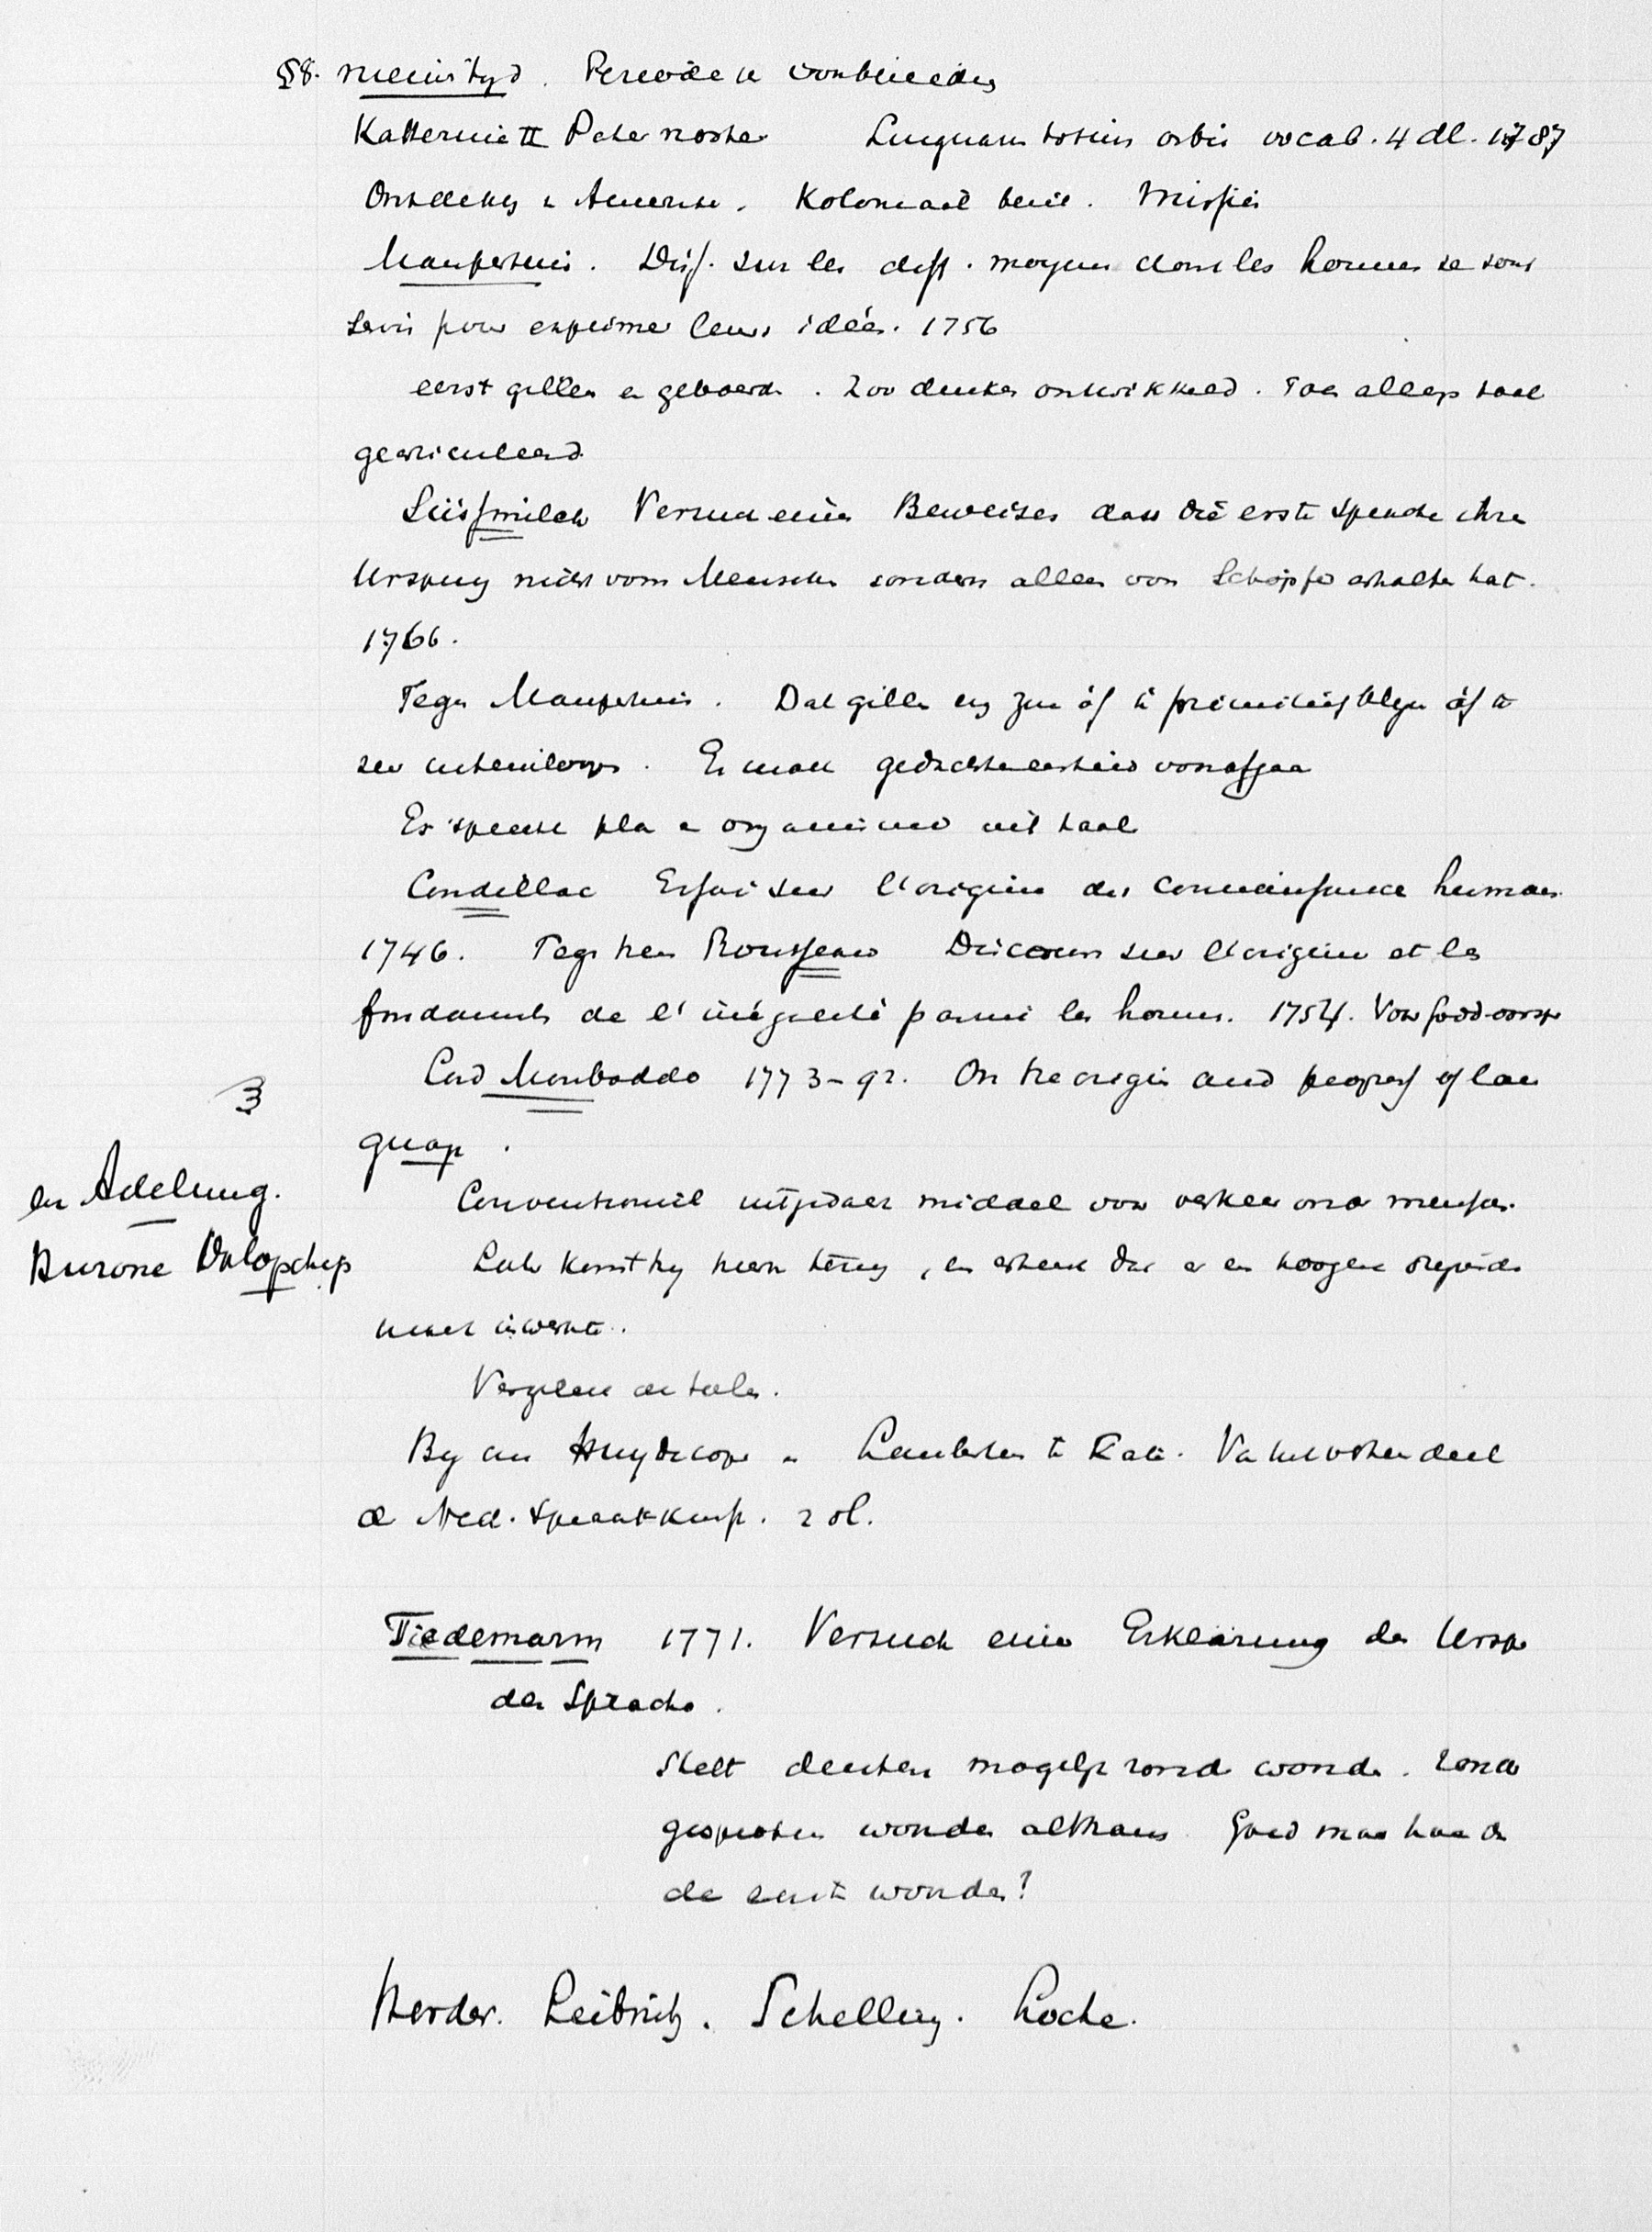 §8. nieuwe tyd. Periode v voorbereiding
Katterine II Pater noster Linguarum totius orbis vocab. 4 dl. 1787
Ontdekking v Amerika. Koloniaal bezit. Missies
Maupertuis. Diss. sur les diff. moyens dont les hommes se sont
servis pour exprimer leurs idées. 1756
eerst gillen en gebaren. Zoo denken ontwikkeld. Toen allengs taal
gearticuleerd
Süssmilch Versuch eines Beweises dass die erste Sprache ihren
Ursprung nicht vom Menschen sondern allein vom Schöpfer erhalten hat.
1766.
Tegen Maupertuis. Dat gillen enz zou óf te primitief blyven óf te
zeer. Er moet voorafgaan
Er spreekt plan en organisme uit taal
Condillac Essai sur l'origine des connaissances humaines
1746. Tegen hem Rousseau Discours sur l'origine et les
fondaments de l'inégalité parmi les hommes. 1754. Voor
Lord Monboddo 1773-92. On the origin and progress of lan
guage.
3
en Adelung.
Conventioneel middel voor verkeer onder menschen.
Later komt hy hierop terug, en erkent dat er een hoogere
inwerkte.
Vergelijkt de talen.
By ons Huydecoper en Lambert ten Kate.
de Ned. Spraakkunst. 2 dl.
Tiedemann 1771. Versuch einer Erklärung des Urspr
der Sprache.
Stelt denken mogelijk zonder woorden. Zonder
gesproken woorden althans. Goed maar hoe dan
de eerste woorden?
Herder. Leibnitz. Schelling. Locke.